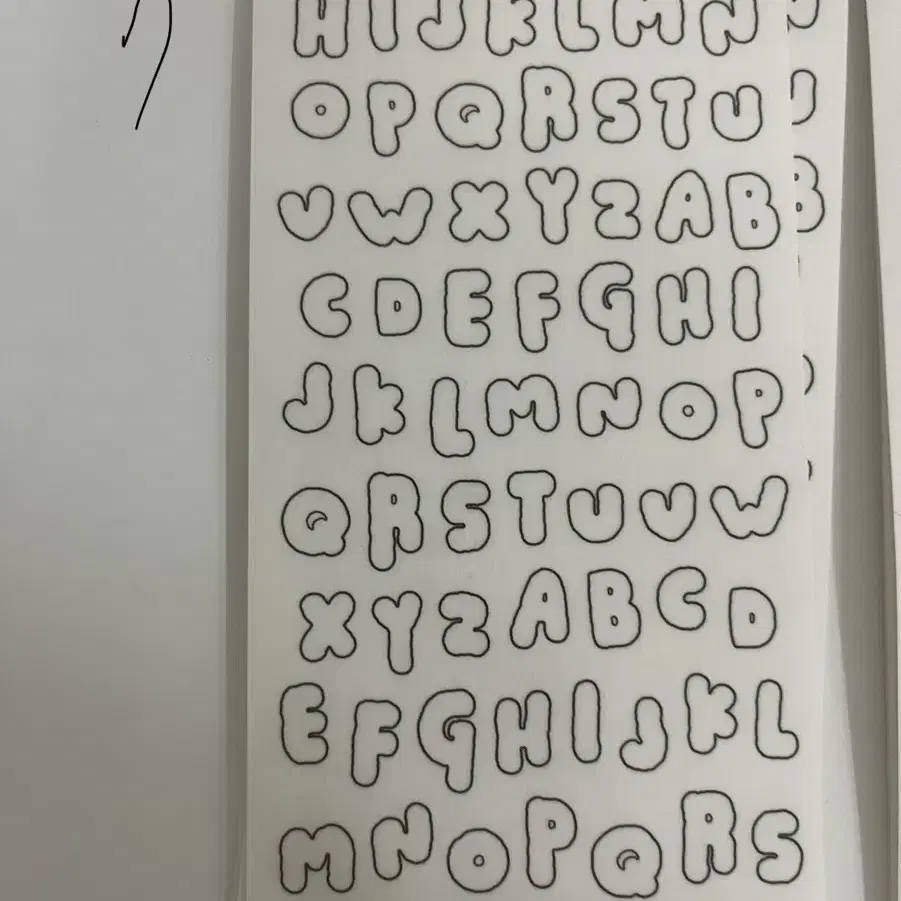 H I J K L M N
O P Q R S T U
V W X Y Z A B
C D E F G H I
J K L M N O P
Q R S T U V W
X Y Z A B C D
E F G H I J K L
M N O P Q R S
B